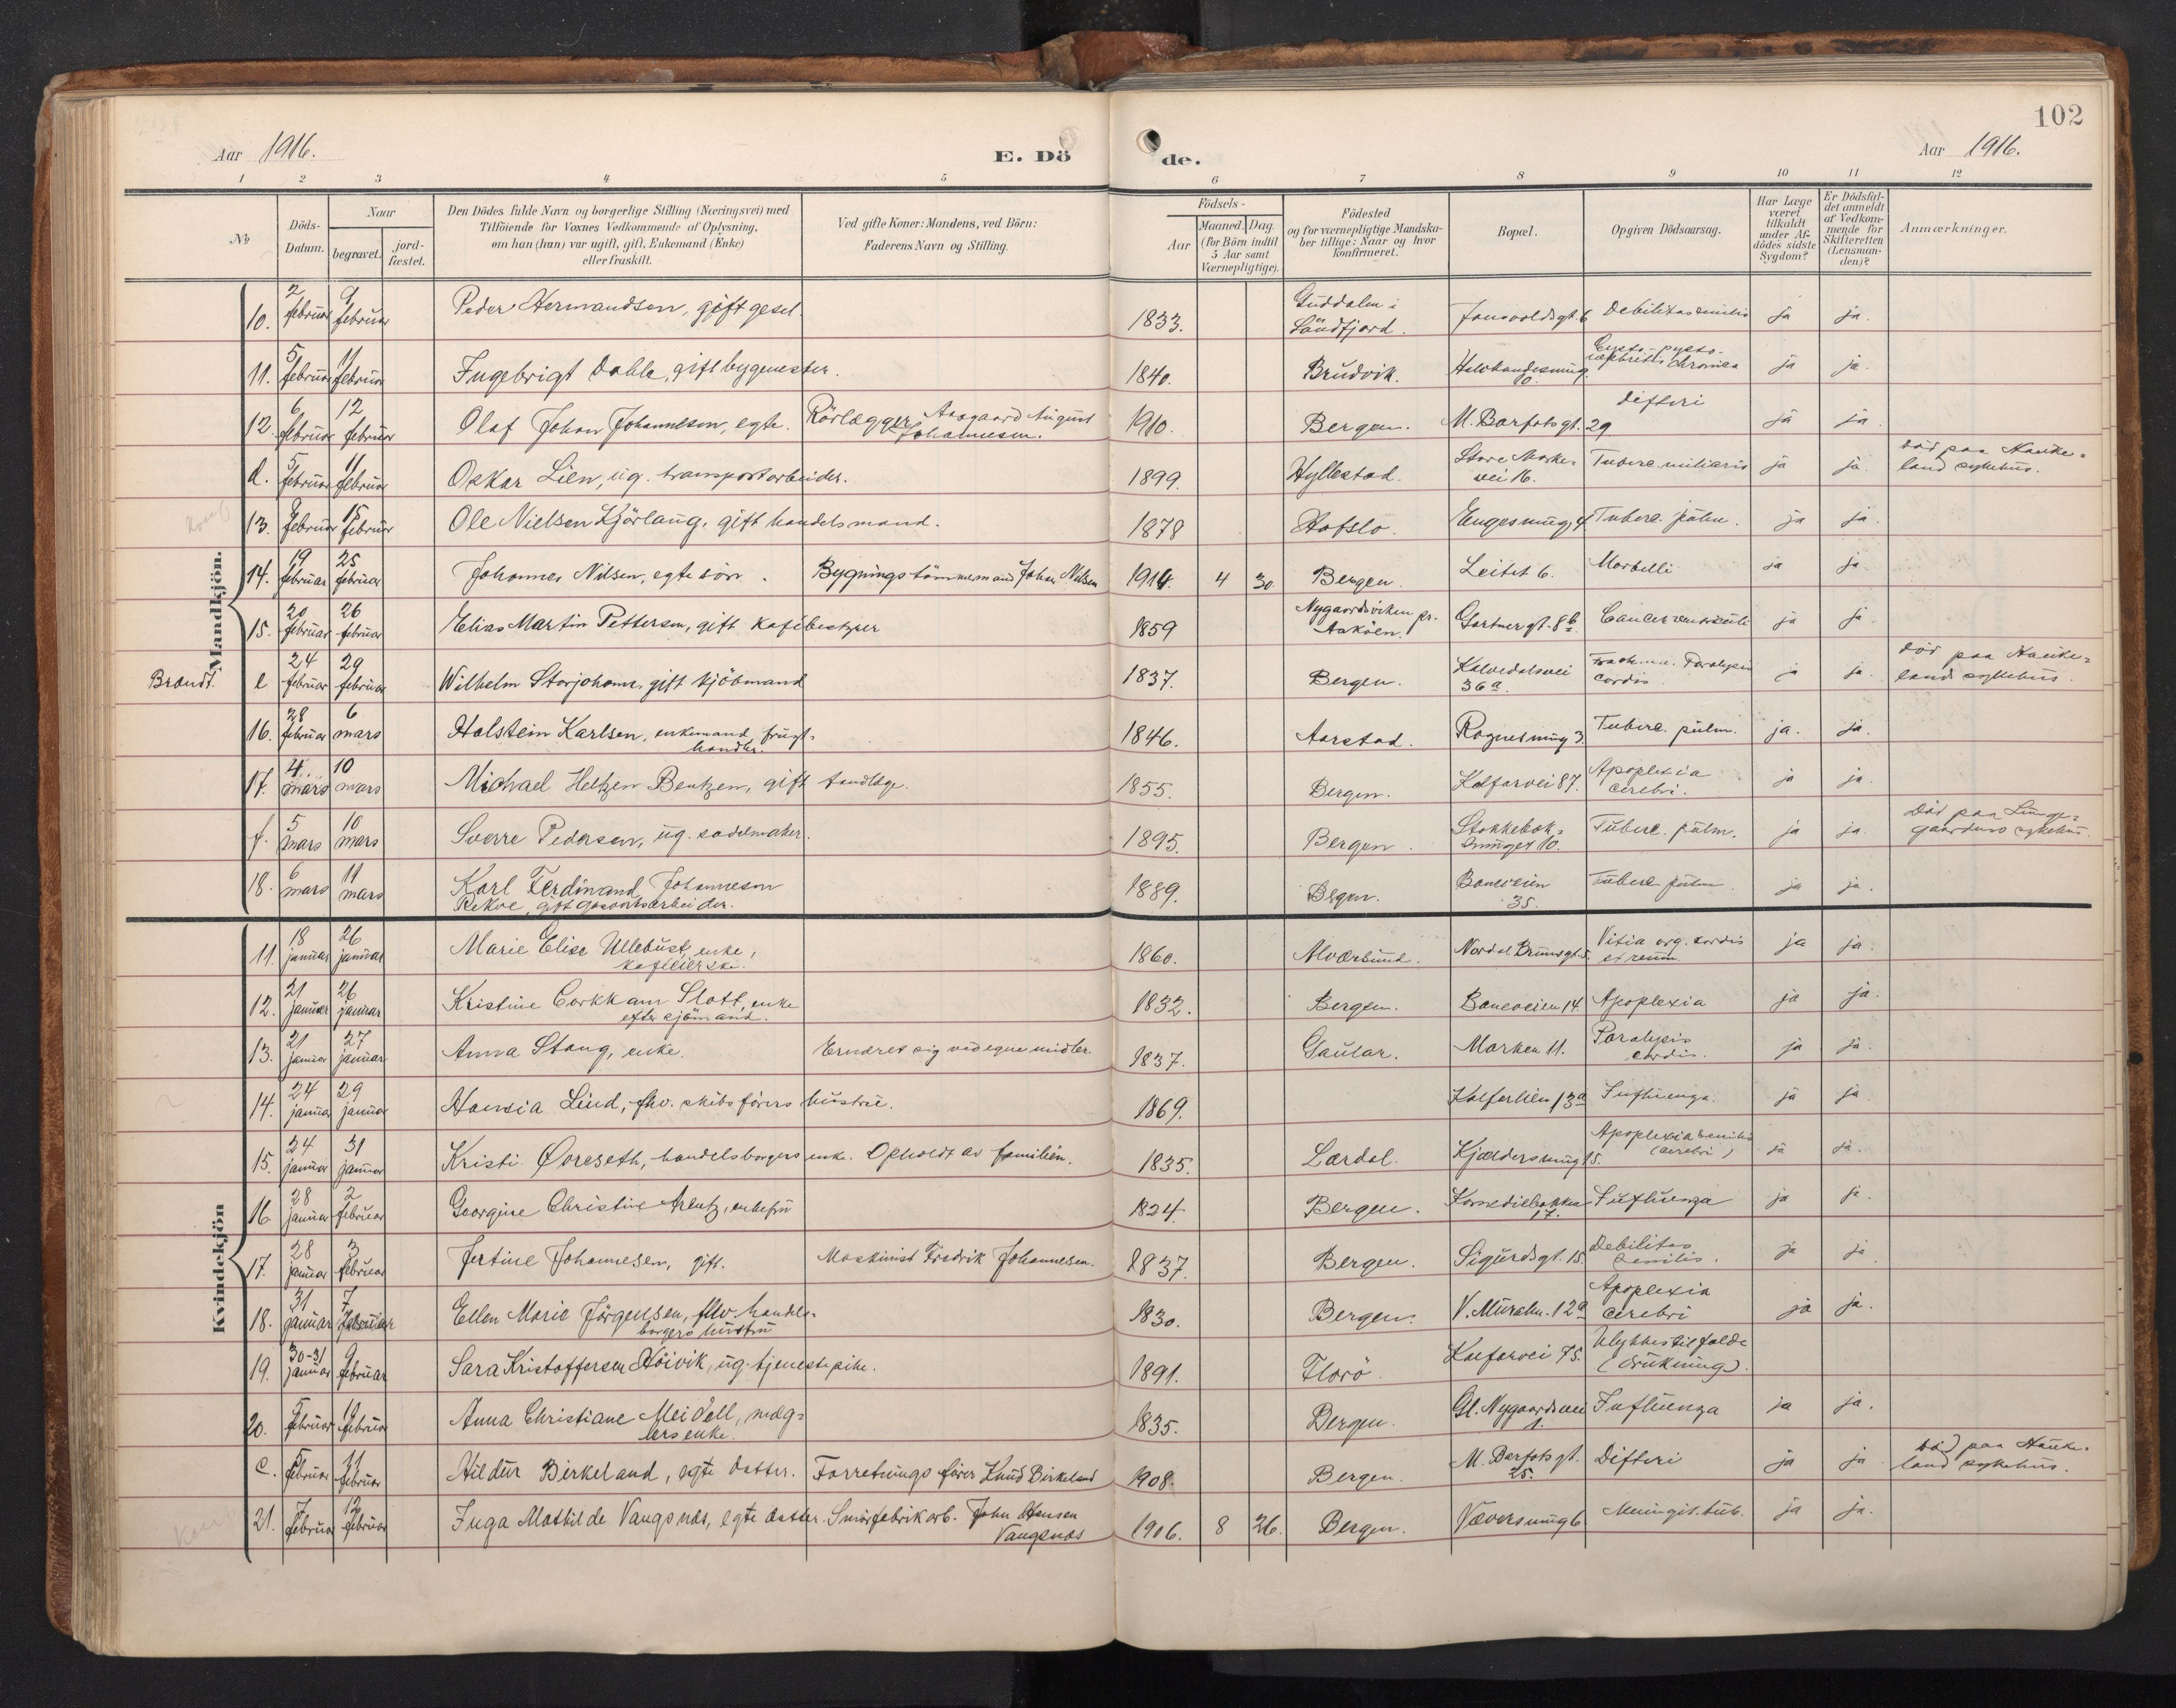 102
Aar 1916. E. Dö de. Aar 1916.
1 2 3 4 5 6 7 8 9 10 11 12
No Döds-Datum. Naar begravet. jord-fæstet. Den Dödes fulde Navn og borgerlige Stilling (Næringsvei) med Tilföiende for Voxnes Vedkommende af Oplysning, om han (hun) var ugift, gift, Enkemand (Enke) eller fraskilt. Ved gifte Koner: Mandens, ved Börn: Faderens Navn og Stilling. Födsels- Aar Maaned. Dag. (for Börn indtil 5 Aar samt Værnepligtige). Födested og for værnepligtige Mandskaber tillige: Naar og hvor Konfirmeret. Bopæl. Opgiven Dödsaarsag. Har Læge været tilkaldt under Afdödes sidste Sygdom? Er Dödsfaldet anmeldt af Vedkommende for Skifteretten (Lensmanden)? Anmærkninger.
Mandkjön.
10. 2 februar 9 februar Peder Hermandsen, gift gesel. 1833. Guddalen i Söndfjord. 6 Debilitas senilis ja ja.
11. 5 februar 11 februar Ingebrigt Dahle, gift bygmester. 1840. Brudvik. 10. chronica ja ja.
12. 6 februar 12 februar Olaf Johan Johannesen, egte. Rörlægger Aasgaard August Johannesen. 1910. Bergen. M. Barfotsgt. 29 difteri ja ja.
d. 5 februar 11 februar Oskar Lien, ug. transportarbeider. 1899. Hyllestad. Store Markevei 16. Tuberc. miliaris ja ja. död paa Haukeland sykehus.
13. 8 februar 15 februar Ole Nielsen Kjörlaug, gift handelsmand. 1878 Hafslo. Engesmug. 4 Tuberc. pulm. ja ja.
14. 19 februar 25 februar Johannes Nilsen, egte sön. Bygningstömmermand Johan Nilsen 1914. 4 30 Bergen. Leitet 6. Morbilli ja ja.
15. 20 februar 26 februar Elias Martin Pettersen, gift kafébestyrer 1859 Nygaardsviken pr. Asköen. Gartnergt. 8b Cancer ventriculi ja ja.
Brandt. e 24 februar 29 februar Wilhelm Storjohann, gift kjöbmand 1837. Bergen. Kalvedalsvei 36a. Paralysis cordis ja ja. död paa Haukelands sykehus.
16. 28 februar 6 mars Holstein Karlsen, enkemand, frugthandler. 1846. Aarstad. Rognesmug 3. Tuberc. pulm. ja. ja.
17. 4. mars 10 mars Michael Heltzen Bentzen, gift tandlæge. 1855. Bergen. Kalfarvei 87. Apoplexia cerebri. ja ja.
f. 5 mars 10 mars Sverre Pedersen, ug. sadelmaker. 1895. Bergen. 10. Tuberc. pulm. ja ja. Död paa Lungegaardens sykehus.
18. 6 mars 11 mars Karl Ferdinand Johannesen Rekve, gift gasverksarbeider. 1889. Bergen. Baneveien 35. Tuberc. pulm. ja ja.
Kvindekjön
11. 18 januar 26 januar Marie Elise Ullebust, enke, kafeeierske. 1860. Alværsund. Nordal Brunsgt. 5. Vitia org. cordis et renum ja ja.
12. 21 januar 26 januar Kristine Corkkam Slott, enke efter sjömand. 1832. Bergen. Baneveien 14. Apoplexia ja ja.
13. 21 januar 27 januar Anna Stang, enke. Ernæret sig ved egne midler. 1837. Gaular. Marken 11. Paralysis cordis. ja ja.
14. 24 januar 29 januar Hansia Lind, fhv. skibsförers hustru. 1869. Kalfarlien 13a Influenza. ja ja.
15. 24 januar 31 januar Kristi Övreseth, handelsborgers enke. Opholdt av familien. 1835. Lærdal. Kjældersmug 15. Apoplexia senilis (cerebri) ja ja.
16. 28 januar 2 februar Georgine Christine Arentz, enkefru 1824. Bergen. Komediebakken 17. Influenza ja ja.
17. 28 januar 3 februar Jertine Johannesen, gift. Maskinist Fredrik Johannesen. 1837. Bergen. Sigurdsgt. 15. Debilitas senilis. ja ja
18. 31 januar 7 februar Ellen Marie Jörgensen, fhv. handelsborgers hustru 1830. Bergen. V. Muralm. 12a Apoplexia cerebri ja ja.
19. 30-31 januar 9 februar Sara Kristoffersen Höivik, ug. tjenestepike. 1891. Florö. Kalfarvei 75. Ulykkestilfælde (drukning).
20. 5 februar 10 februar Anna Christiane Meidell, mæglers enke. 1835. Bergen. Gl. Nygaardsvei 1. Influenza ja ja.
c. 5 februar 11 februar Hildur Birkeland, egte datter. Forretningsförer Knud Birkeland 1908. Bergen. M. Barfotsgt. 25. Difteri ja ja. död paa Haukeland sykehus.
21. 7 februar 12 februar Inga Mathilde Vangsnæs, egte datter. Smörfabrikarb. John Hansen Vangsnæs 1906. 8 26. Bergen. Væversmug 6. Meningit. tub. ja ja.